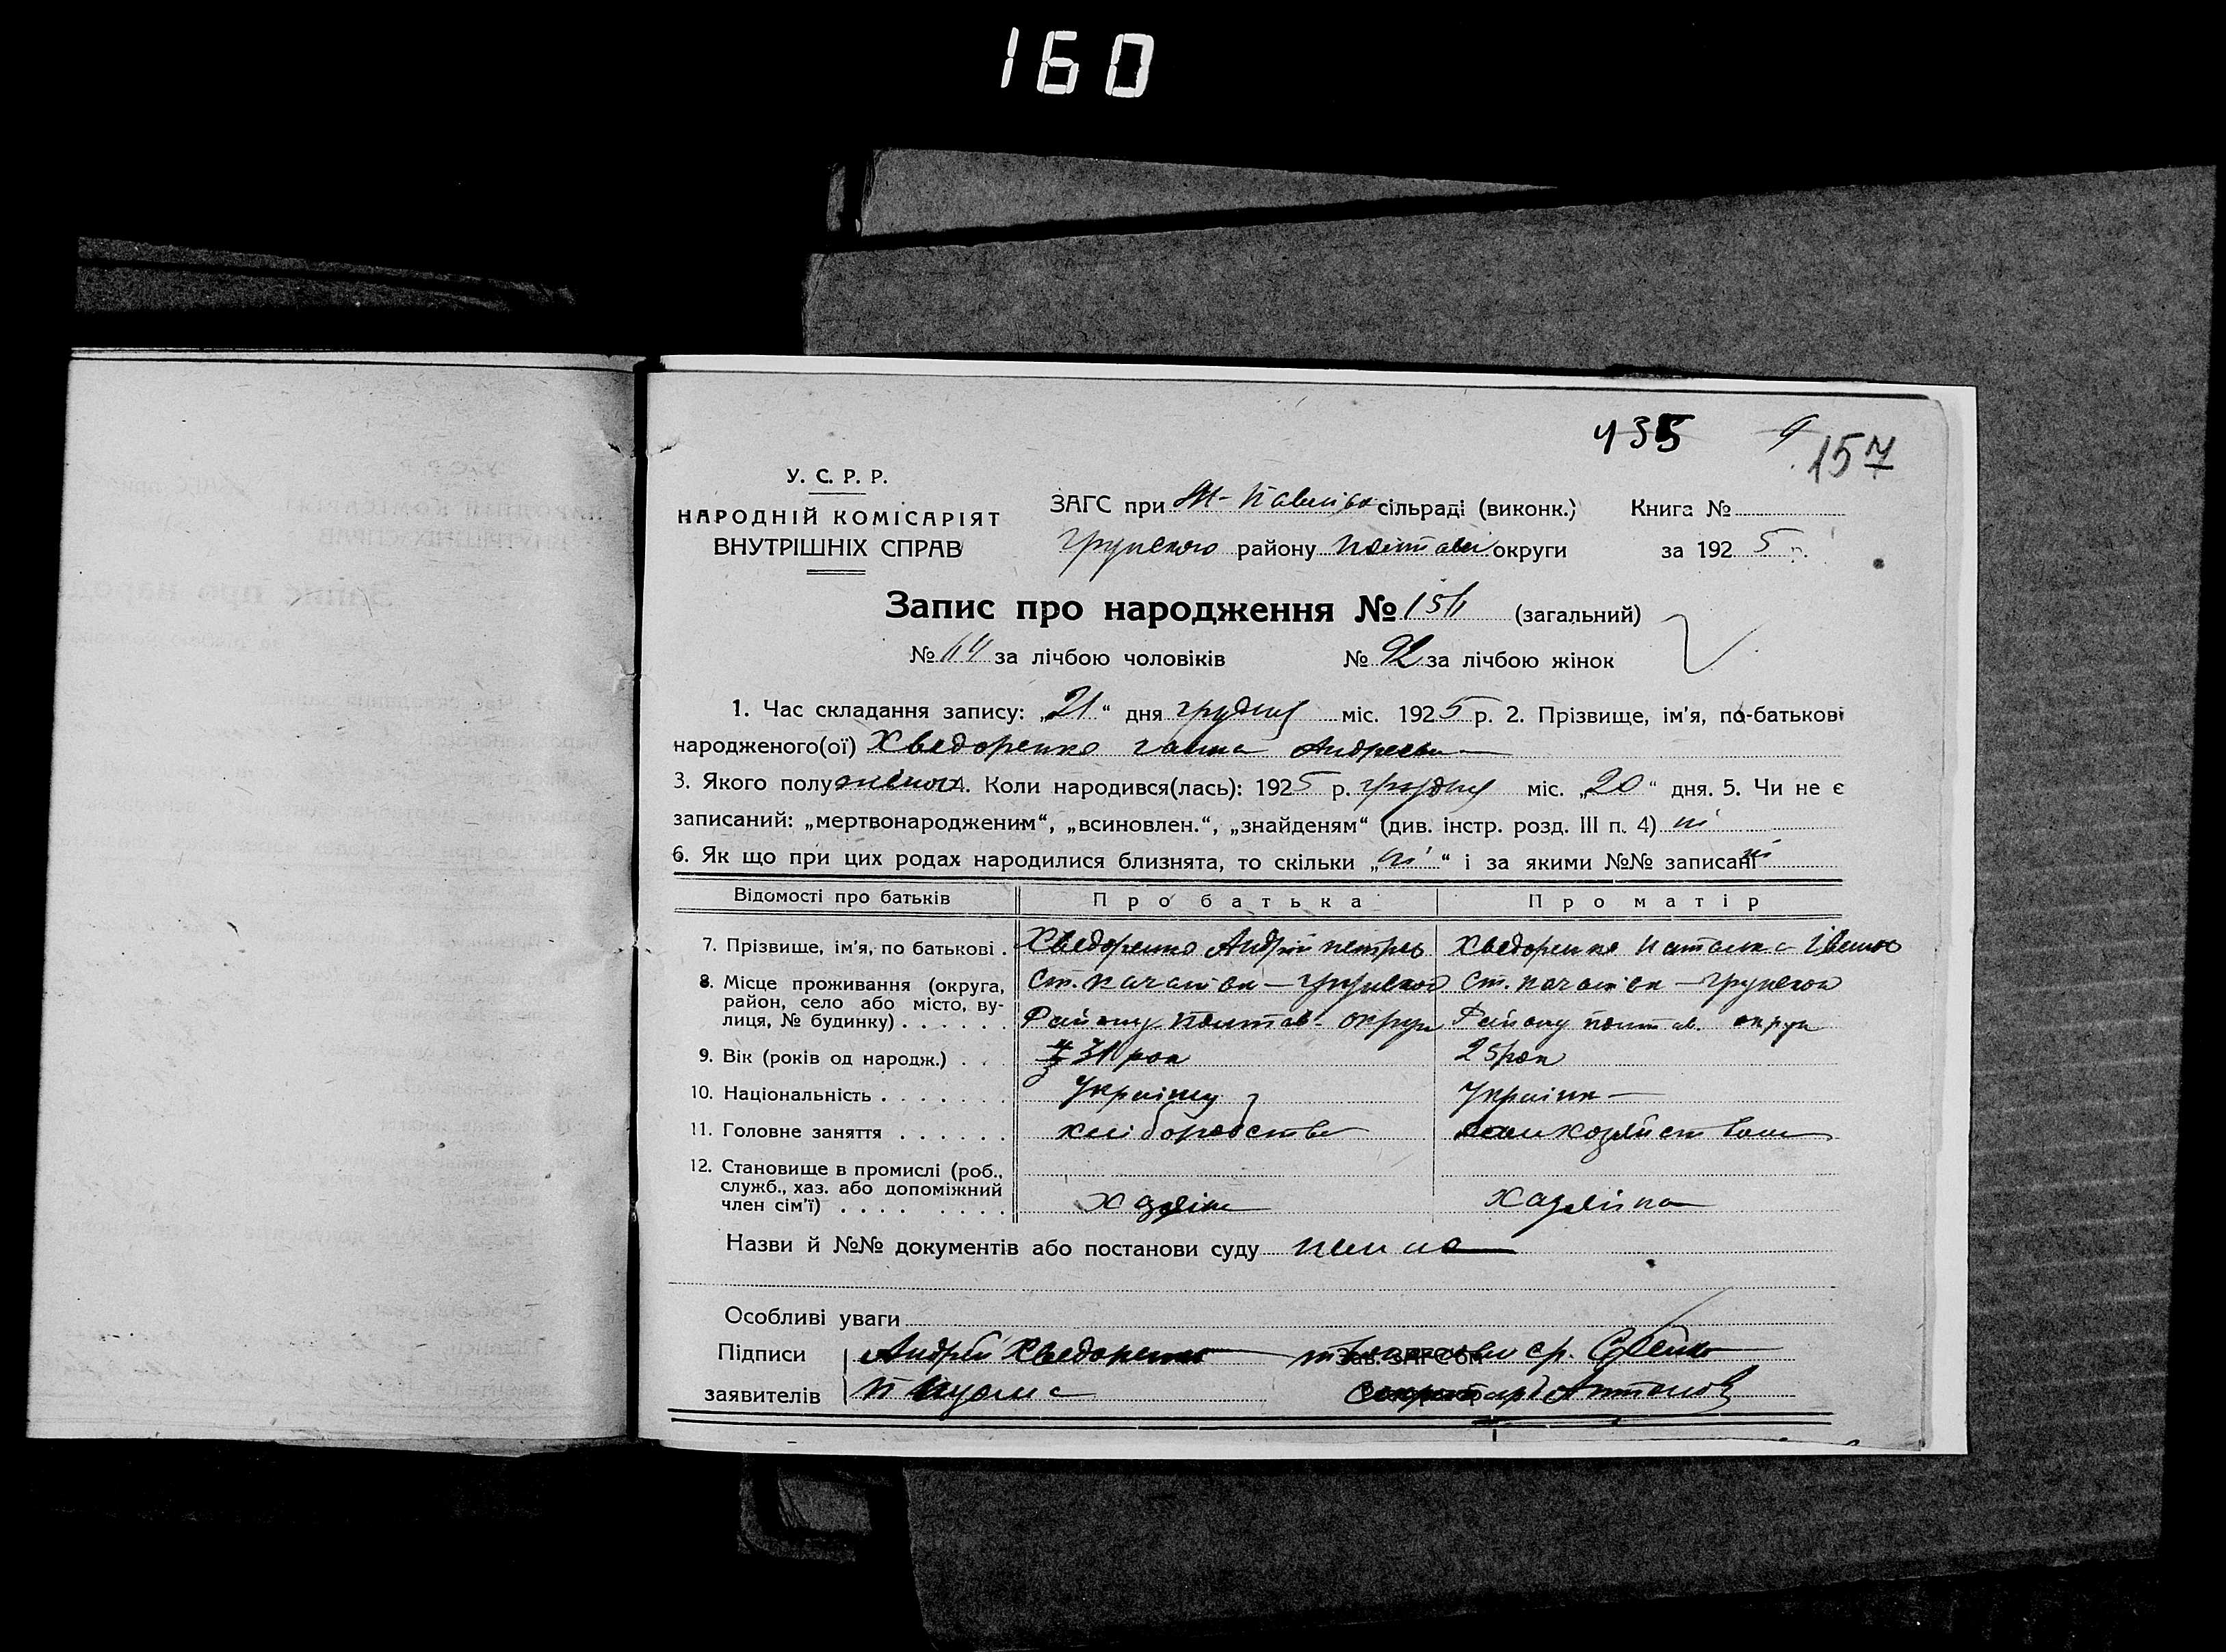 160
435
157
У. С. Р. Р.
НАРОДНІЙ КОМІСАРІЯТ
ВНУТРІШНІХ СПРАВ
ЗАГС при сільраді (виконк.) Книга №
Грунского району округи за 1925 р.
Запис про народження № (загальний)
№ 64 за лічбою чоловіків № 92 за лічбою жінок
1. Час складання запису: „21“ дня грудня міс. 1925 р. 2. Прізвище, ім'я, по-батькові
народженого(ої) Хведоренко Ганна Андреевна
3. Якого полу жіноч 4. Коли народився(лась): 1925 р. грудня міс. „20“ дня. 5. Чи не є
записаний: „мертвонародженим“, „всиновлен.“, „знайденям“ (див. інстр. розд. III п. 4) ні
6. Як що при цих родах народилися близнята, то скільки „ні“ і за якими №№ записані ні
Відомості про батьків Про батька Про матір
7. Прізвище, ім'я, по батькові . Хведоренко Андрій петров Хведоренко Наталка Івановна
8. Місце проживання (округа, район, село або місто, вулиця, № будинку) . . . . . . Ст. Грунского Ст. Грунского
Району Полтав. округи Району полтав. округи
9. Вік (років од народж.) . . 31 рок 25 рок
10. Національність . . . . . . . Українец Українка
11. Головне заняття . . . . . . хліборобство
12. Становище в промислі (роб., служб., хаз. або допоміжний член сім'ї) . . . . . . . . Хазяін Хазяйка
Назви й №№ документів або постанови суду нема
Особливі уваги
Підписи Андрій Хведоренко Зав. ЗАГСом
заявителів Секретар